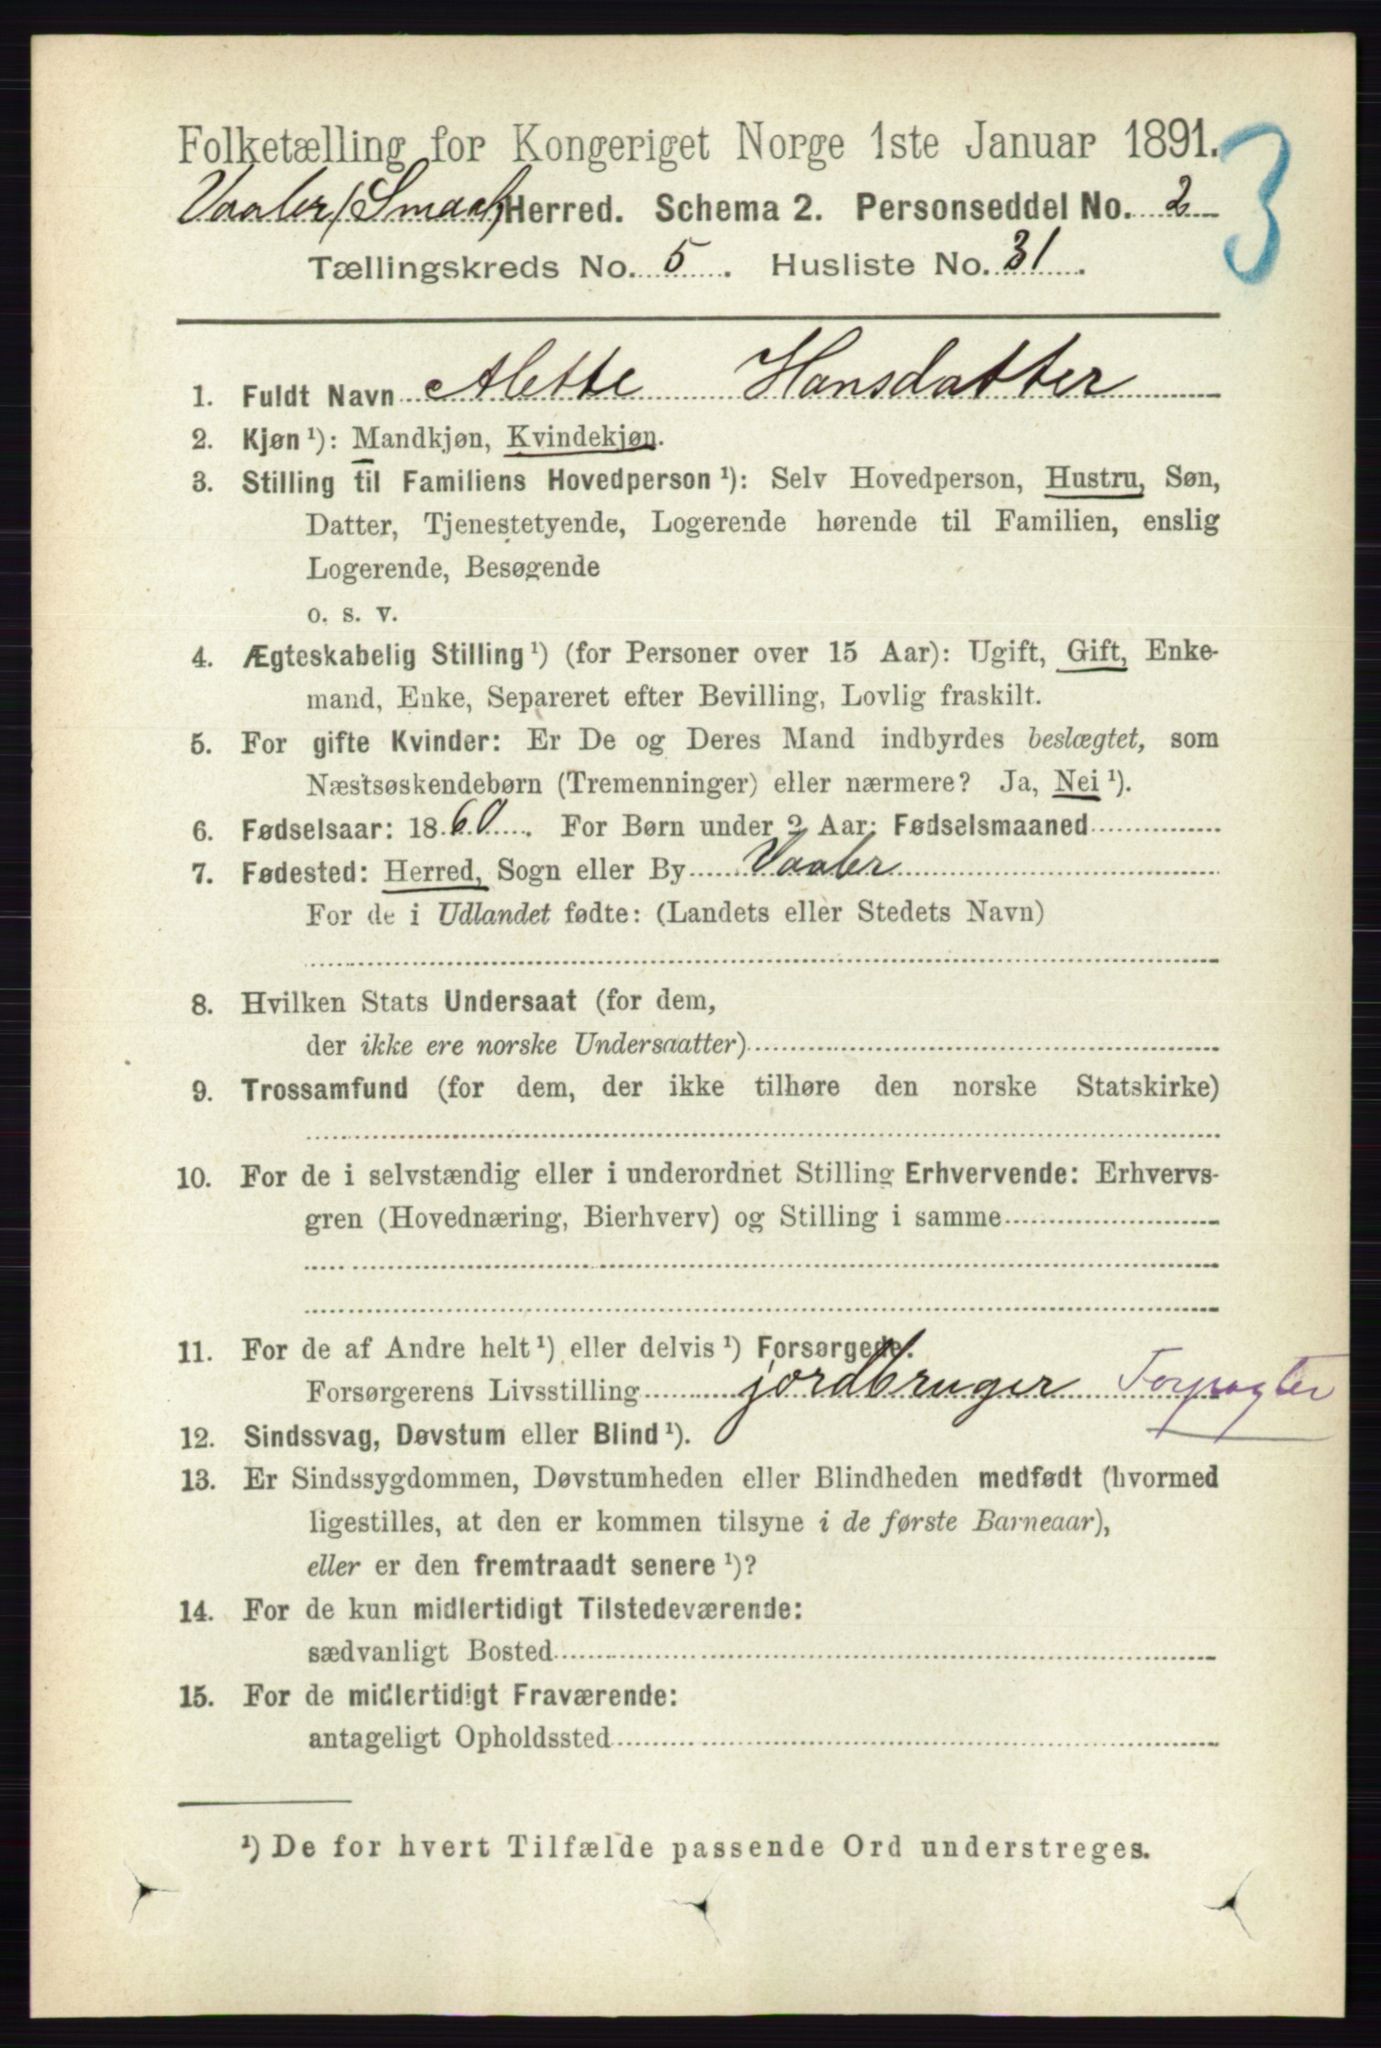 Folketælling for Kongeriget Norge 1ste Januar 1891.
3
Vaaler (Smaal) Herred. Schema 2. Personseddel No. 2
Tællingskreds No. 5. Husliste No. 31.
1. Fuldt Navn Alette Hansdatter
2. Kjøn ¹): Mandkjøn, Kvindekjøn.
3. Stilling til Familiens Hovedperson ¹): Selv Hovedperson, Hustru, Søn,
Datter, Tjenestetyende, Logerende hørende til Familien, enslig
Logerende, Besøgende
o. s. v.
4. Ægteskabelig Stilling ¹) (for Personer over 15 Aar): Ugift, Gift, Enke-
mand, Enke, Separeret efter Bevilling, Lovlig fraskilt.
5. For gifte Kvinder: Er De og Deres Mand indbyrdes beslægtet, som
Næstsøskendebørn (Tremenninger) eller nærmere? Ja, Nei ¹).
6. Fødselsaar: 1860. For Børn under 2 Aar: Fødselsmaaned
7. Fødested: Herred, Sogn eller By Vaaler
For de i Udlandet fødte: (Landets eller Stedets Navn)
8. Hvilken Stats Undersaat (for dem,
der ikke ere norske Undersaatter)
9. Trossamfund (for dem, der ikke tilhøre den norske Statskirke)
10. For de i selvstændig eller i underordnet Stilling Erhvervende: Erhvervs-
gren (Hovednæring, Bierhverv) og Stilling i samme
11. For de af Andre helt ¹) eller delvis ¹) Forsørgede:
Forsørgerens Livsstilling jordbruger Forpagter
12. Sindssvag, Døvstum eller Blind ¹).
13. Er Sindssygdommen, Døvstumheden eller Blindheden medfødt (hvormed
ligestilles, at den er kommen tilsyne i de første Barneaar),
eller er den fremtraadt senere ¹)?
14. For de kun midlertidigt Tilstedeværende:
sædvanligt Bosted
15. For de midlertidigt Fraværende:
antageligt Opholdssted
¹) De for hvert Tilfælde passende Ord understreges.